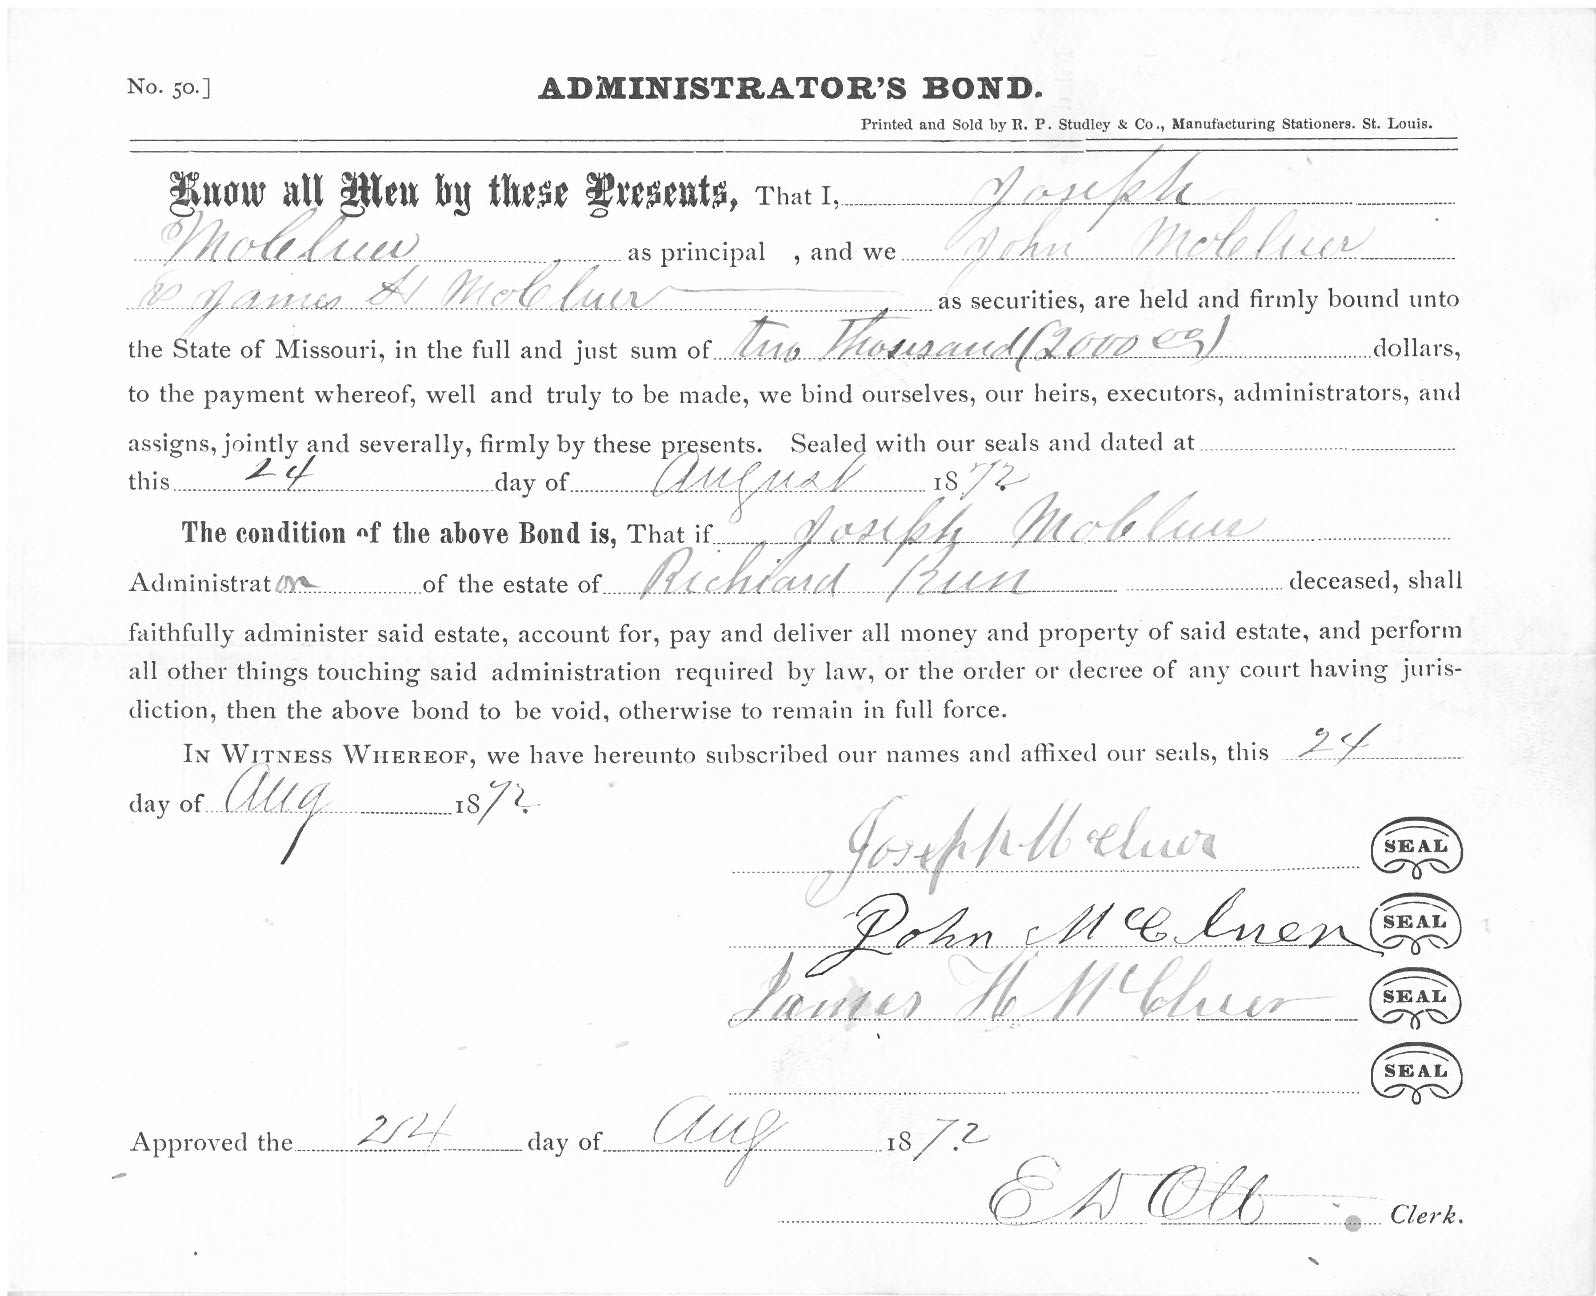 No. 50.]
ADMINISTRATOR'S BOND.
Printed and Sold by R. P. Studley & Co., Manufacturing Stationers. St. Louis.
Know all Men by these Presents, That I, Joseph
McCluer as principal , and we John McCluer
& James H McCluer as securities, are held and firmly bound unto
the State of Missouri, in the full and just sum of two Thousand (2000 00) dollars,
to the payment whereof, well and truly to be made, we bind ourselves, our heirs, executors, administrators, and
assigns, jointly and severally, firmly by these presents. Sealed with our seals and dated at
this 24 day of August 1872
The condition of the above Bond is, That if Joseph McCluer
Administrator of the estate of Richard deceased, shall
faithfully administer said estate, account for, pay and deliver all money and property of said estate, and perform
all other things touching said administration required by law, or the order or decree of any court having juris-
diction, then the above bond to be void, otherwise to remain in full force.
In Witness Whereof, we have hereunto subscribed our names and affixed our seals, this 24
day of Aug 1872
Joseph McCluer SEAL
John McCluer SEAL
James H McCluer SEAL
SEAL
Approved the 24 day of Aug 1872
E D Ott Clerk.